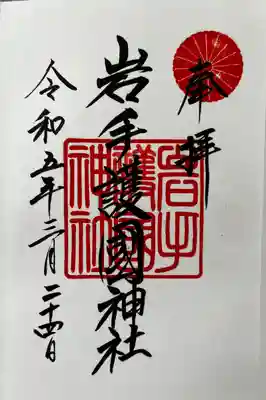 奉拝
岩手護國神社
岩手護國神社
令和五年三月二十四日